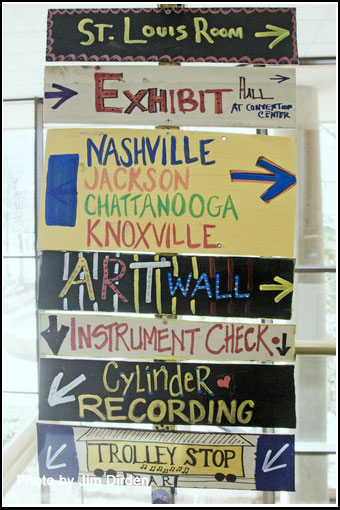 ST. LOUIS ROOM
EXHIBIT HALL
AT CONVENTION
CENTER
NASHVILLE
JACKSON
CHATTANOOGA
KNOXVILLE
ART WALL
INSTRUMENT CHECK
CYLINDER
RECORDING
TROLLEY STOP
BAR
Photo by Jim Dirden